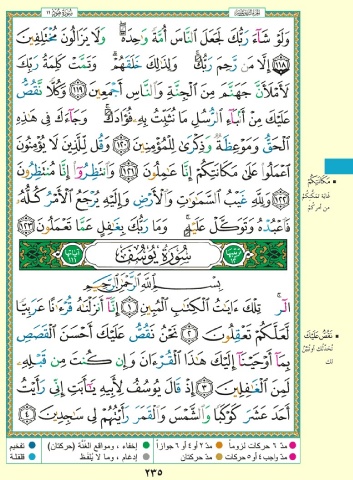 سُورَةُ هُودٍ ١١
وَلَوْ شَآءَ رَبُّكَ لَجَعَلَ ٱلنَّاسَ أُمَّةً وَٰحِدَةً ۖ وَلَا يَزَالُونَ مُخْتَلِفِينَ
﴿١١٨﴾ إِلَّا مَن رَّحِمَ رَبُّكَ ۚ وَلِذَٰلِكَ خَلَقَهُمْ ۗ وَتَمَّتْ كَلِمَةُ رَبِّكَ
لَأَمْلَأَنَّ جَهَنَّمَ مِنَ ٱلْجِنَّةِ وَٱلنَّاسِ أَجْمَعِينَ ﴿١١٩﴾ وَكُلًّا نَّقُصُّ
عَلَيْكَ مِنْ أَنۢبَآءِ ٱلرُّسُلِ مَا نُثَبِّتُ بِهِۦ فُؤَادَكَ ۚ وَجَآءَكَ فِى هَٰذِهِ
ٱلْحَقُّ وَمَوْعِظَةٌ وَذِكْرَىٰ لِلْمُؤْمِنِينَ ﴿١٢٠﴾ وَقُل لِّلَّذِينَ لَا يُؤْمِنُونَ
ٱعْمَلُوا۟ عَلَىٰ مَكَانَتِكُمْ إِنَّا عَٰمِلُونَ ﴿١٢١﴾ وَٱنتَظِرُوٓا۟ إِنَّا مُنتَظِرُونَ
﴿١٢٢﴾ وَلِلَّهِ غَيْبُ ٱلسَّمَٰوَٰتِ وَٱلْأَرْضِ وَإِلَيْهِ يُرْجَعُ ٱلْأَمْرُ كُلُّهُۥ
فَٱعْبُدْهُ وَتَوَكَّلْ عَلَيْهِ ۚ وَمَا رَبُّكَ بِغَٰفِلٍ عَمَّا تَعْمَلُونَ ﴿١٢٣﴾
سُورَةُ يُوسُفَ
بِسْمِ ٱللَّهِ ٱلرَّحْمَٰنِ ٱلرَّحِيمِ
الٓر ۚ تِلْكَ ءَايَٰتُ ٱلْكِتَٰبِ ٱلْمُبِينِ ﴿١﴾ إِنَّآ أَنزَلْنَٰهُ قُرْءَٰنًا عَرَبِيًّا
لَّعَلَّكُمْ تَعْقِلُونَ ﴿٢﴾ نَحْنُ نَقُصُّ عَلَيْكَ أَحْسَنَ ٱلْقَصَصِ
بِمَآ أَوْحَيْنَآ إِلَيْكَ هَٰذَا ٱلْقُرْءَانَ وَإِن كُنتَ مِن قَبْلِهِۦ
لَمِنَ ٱلْغَٰفِلِينَ ﴿٣﴾ إِذْ قَالَ يُوسُفُ لِأَبِيهِ يَٰٓأَبَتِ إِنِّى رَأَيْتُ
أَحَدَ عَشَرَ كَوْكَبًا وَٱلشَّمْسَ وَٱلْقَمَرَ رَأَيْتُهُمْ لِى سَٰجِدِينَ ﴿٤﴾
مَكَانَتِكُمْ
غاية تمكّنكم
من أمركم
نَقُصُّ عَلَيْكَ
مدّ ٦ حركات لزوماً
مدّ ٢ أو ٤ أو ٦ جوازاً
إخفاء، ومواقع الغُنَّة (حركتان)
تفخيم
مدّ واجب ٤ أو ٥ حركات
مدّ حركتان
إدغام، وما لا يُلفَظ
قلقلة
٢٣٥